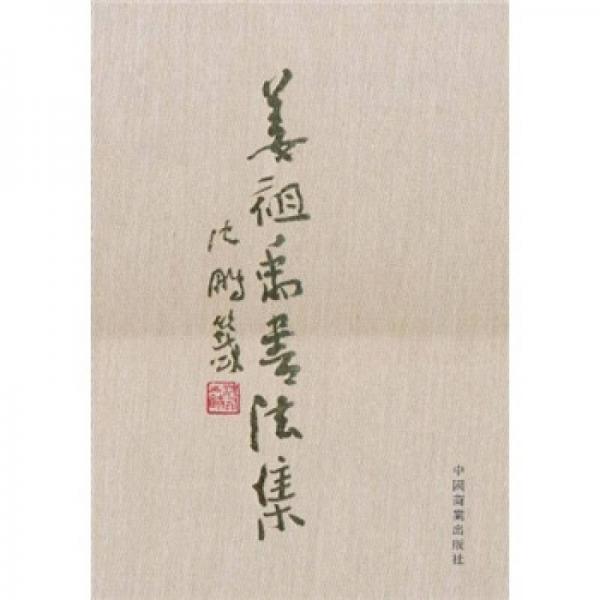 姜祖禹书法集
沈鹏
中国商业出版社